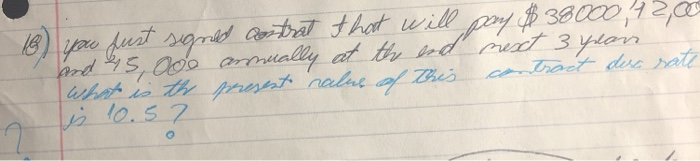 18) you just signed contrat that will pay $38000, 42,00
and 45,000 annually at the end next 3 years
what is the present value of this contract disc rate
is 10.5 ?
?